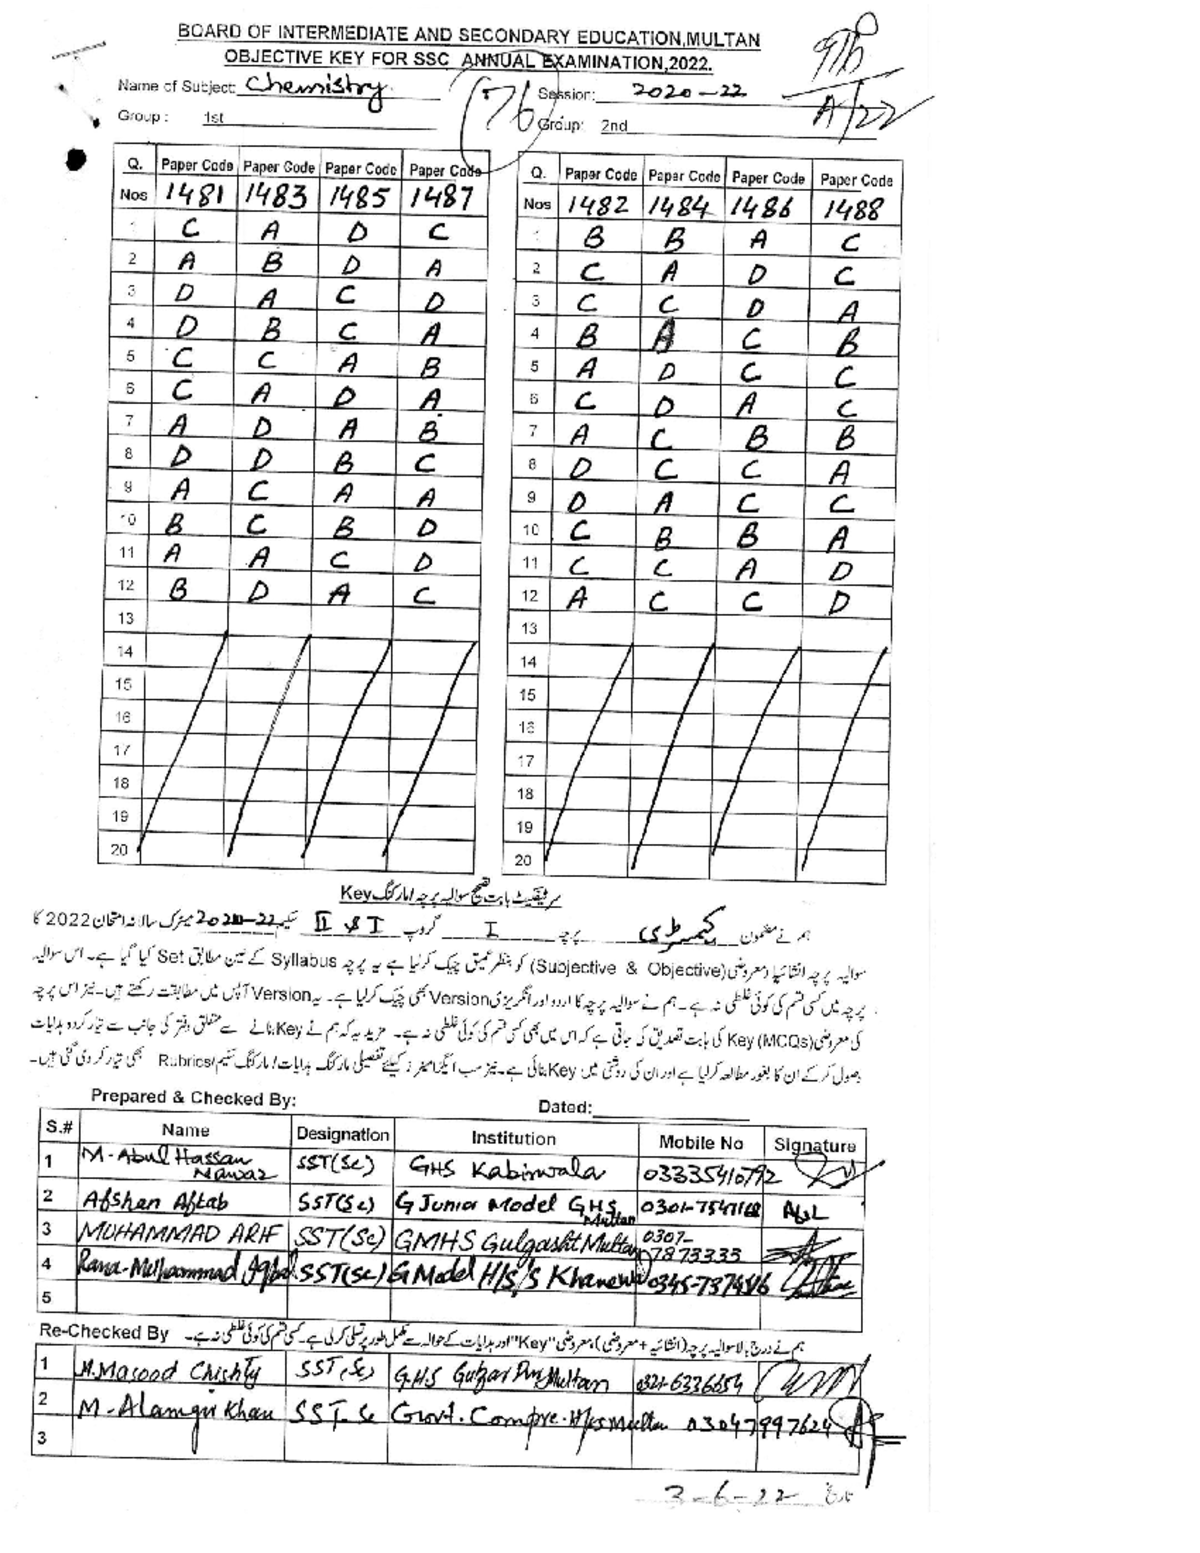 BOARD OF INTERMEDIATE AND SECONDARY EDUCATION,MULTAN
OBJECTIVE KEY FOR SSC ANNUAL EXAMINATION,2022.
9th
A/22
Name of Subject: Chemistry Session: 2020-22
(76)
Group : 1st Group: 2nd
Q. Nos Paper Code 1481 Paper Code 1483 Paper Code 1485 Paper Code 1487
1 C A D C
2 A B D A
3 D A C D
4 D B C A
5 C C A B
6 C A D A
7 A D A B
8 D D B C
9 A C A A
10 B C B D
11 A A C D
12 B D A C
13
14
15
16
17
18
19
20
Q. Nos Paper Code 1482 Paper Code 1484 Paper Code 1486 Paper Code 1488
1 B B A C
2 C A D C
3 C C D A
4 B A C B
5 A D C C
6 C D A C
7 A C B B
8 D C C A
9 D A C C
10 C B B A
11 C C A D
12 A C C D
13
14
15
16
17
18
19
20
سرٹیفکیٹ بابت تصحیح سوالیہ پرچہ/مارکنگ Key
ہم نے مضمون کیمسٹری پرچہ I گروپ I & II سکیم 2020-22 میٹرک سالانہ امتحان 2022 کا
سوالیہ پرچہ انشائیہ/معروضی (Subjective & Objective) کو بنظر عمیق چیک کر لیا ہے یہ پرچہ Syllabus کے عین مطابق Set کیا گیا ہے۔ اس سوالیہ
پرچہ میں کسی قسم کی کوئی غلطی نہ ہے۔ ہم نے سوالیہ پرچہ کا اردو اور انگریزی Version بھی چیک کر لیا ہے۔ یہ Version آپس میں مطابقت رکھتے ہیں۔ نیز اس پرچہ
کی معروضی (MCQs) Key کی بابت تصدیق کی جاتی ہے کہ اس میں بھی کسی قسم کی کوئی غلطی نہ ہے۔ مزید یہ کہ ہم نے Key بنانے سے متعلق دفتر کی جانب سے تیار کردہ ہدایات
وصول کر کے ان کا بغور مطالعہ کر لیا ہے اور ان کی روشنی میں Key بنائی ہے۔ نیز سب ایگزامینرز کیلئے تفصیلی مارکنگ ہدایات/مارکنگ سکیم/Rubrics بھی تیار کر دی گئی ہیں۔
Prepared & Checked By: Dated:
S.# Name Designation Institution Mobile No Signature
1 M-Abul Hassan Nawaz SST(Sc) GHS Kabirwala 03335410792
2 Afshan Aftab SST(Sc) G Junior Model GHS Multan 0301-7547168
3 MUHAMMAD ARIF SST(Sc) GMHS Gulgasht Multan 0307-7873335
4 Rana-Muhammad Iqbal SST(Sc) G Model H/S/S Khanewal
5
Re-Checked By ہم نے درج بالا سوالیہ پرچہ (انشائیہ + معروضی)، معروضی "Key" اور ہدایات کے حوالہ سے مکمل طور پر تسلی کر لی ہے۔ کسی قسم کی کوئی غلطی نہ ہے۔
1 M.Masood Chishty SST(Sc) GHS Gulzar Pur Multan 0321-6336654
2 M-Alamgir Khan SST-Sc Govt. Compre. Multan 03047997624
3
3-6-22 تاریخ